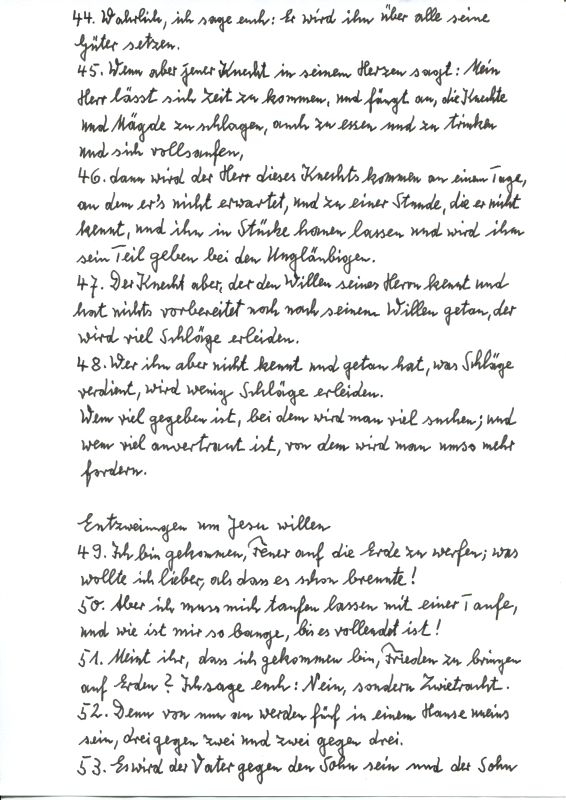 44. Wahrlich, ich sage euch: Er wird ihn über alle seine
Güter setzen.
45. Wenn aber jener Knecht in seinem Herzen sagt: Mein
Herr lässt sich Zeit zu kommen, und fängt an, die Knechte
und Mägde zu schlagen, auch zu essen und zu trinken
und sich vollsaufen,
46. dann wird der Herr dieses Knechts kommen an einem Tage,
an dem er's nicht erwartet, und zu einer Stunde, die er nicht
kennt, und ihn in Stücke hauen lassen und wird ihm
sein Teil geben bei den Ungläubigen.
47. Der Knecht aber, der den Willen seines Herrn kennt und
hat nichts vorbereitet noch nach seinem Willen getan, der
wird viel Schläge erleiden.
48. Wer ihn aber nicht kennt und getan hat, was Schläge
verdient, wird wenig Schläge erleiden.
Wem viel gegeben ist, bei dem wird man viel suchen; und
wem viel anvertraut ist, von dem wird man umso mehr
fordern.
Entzweiungen um Jesu willen
49. Ich bin gekommen, Feuer auf die Erde zu werfen; was
wollte ich lieber, als dass es schon brennte!
50. Aber ich muss mich taufen lassen mit einer Taufe,
und wie ist mir so bange, bis es vollendet ist!
51. Meint ihr, dass ich gekommen bin, Frieden zu bringen
auf Erden? Ich sage euch: Nein, sondern Zwietracht.
52. Denn von nun an werden fünf in einem Hause uneins
sein, drei gegen zwei und zwei gegen drei.
53. Es wird der Vater gegen den Sohn sein und der Sohn